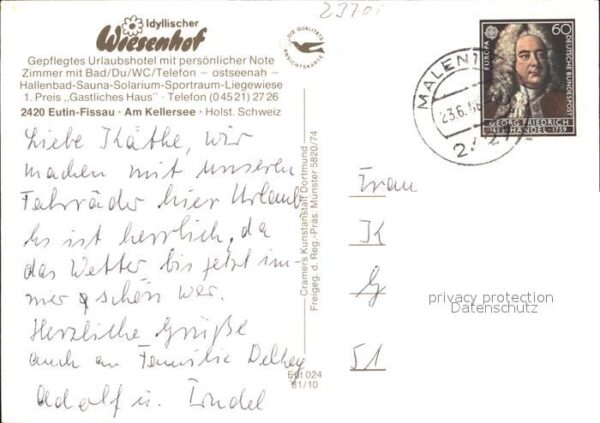 Idyllischer
Wiesenhof
Gepflegtes Urlaubshotel mit persönlicher Note
Zimmer mit Bad/Du/WC/Telefon – ostseenah –
Hallenbad-Sauna-Solarium-Sportraum-Liegewiese
1. Preis „Gastliches Haus" · Telefon (0 45 21) 27 26
2420 Eutin-Fissau · Am Kellersee · Holst. Schweiz
Liebe Käthe, wir
machen mit unseren
Fahrräder hier Urlaub
Es ist herrlich, da
das Wetter bis jetzt im-
mer schön war.
Herzliche Grüße
auch an Familie
Adolf u.
DIE QUALITÄTS
ANSICHTSKARTE
Cramers Kunstanstalt Dortmund
Freigeg. d. Reg.-Präs. Münster 5820/74
Eut 024
81/10
2370
MALENTE
23.6.
EUROPA
60
DEUTSCHE BUNDESPOST
GEORG FRIEDRICH
1685 HÄNDEL 1759
Frau
K
G
51
privacy protection
Datenschutz